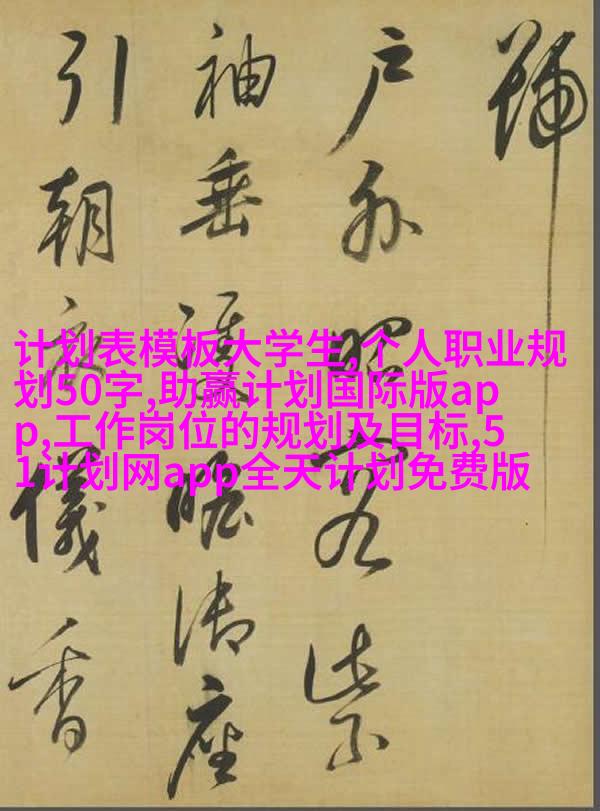 號
户外昭容紫
袖垂瞻御座
引朝儀香
计划表模板大学生,个人职业规
划50字,助赢计划国际版ap
p,工作岗位的规划及目标,5
1计划网app全天计划免费版